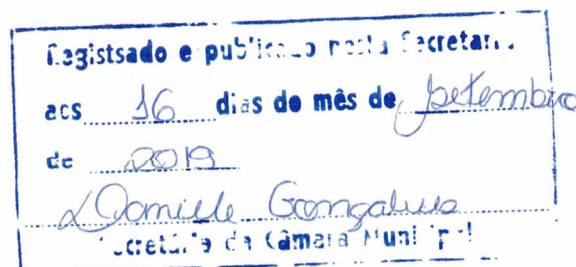 Registsado e publicado nesta Secretaria
aos 16 dias do mês de setembro
de 2019
Daniele Gonçalves
Secretária da Câmara Municipal